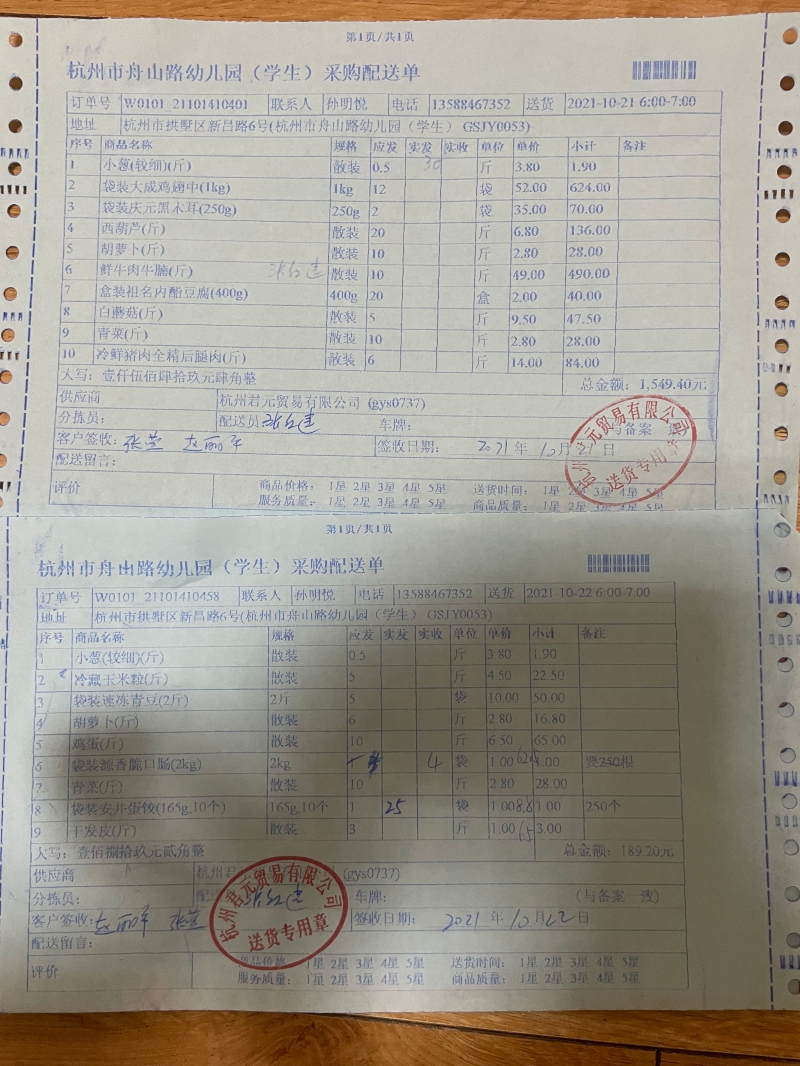 第1页/共1页
杭州市舟山路幼儿园（学生）采购配送单
订单号 W0101_21101410401 联系人 孙明悦 电话 13588467352 送货 2021-10-21 6:00-7:00
地址 杭州市拱墅区新昌路6号(杭州市舟山路幼儿园（学生） GSJY0053)
序号 商品名称 规格 应发 实发 实收 单位 单价 小计 备注
1 小葱(较细)(斤) 散装 0.5 30 斤 3.80 1.90
2 袋装大成鸡翅中(1kg) 1kg 12 袋 52.00 624.00
3 袋装庆元黑木耳(250g) 250g 2 袋 35.00 70.00
4 西葫芦(斤) 散装 20 斤 6.80 136.00
5 胡萝卜(斤) 散装 10 斤 2.80 28.00
6 鲜牛肉牛腩(斤) 张红建 散装 10 斤 49.00 490.00
7 盒装祖名内酯豆腐(400g) 400g 20 盒 2.00 40.00
8 白蘑菇(斤) 散装 5 斤 9.50 47.50
9 青菜(斤) 散装 10 斤 2.80 28.00
10 冷鲜猪肉全精后腿肉(斤) 散装 6 斤 14.00 84.00
大写：壹仟伍佰肆拾玖元肆角整 总金额：1,549.40元
供应商 杭州君元贸易有限公司 (gys0737)
分拣员： 配送员 张红建 车牌： 与备案
客户签收： 张莹 赵丽军 签收日期： 2021 年 10 月 21 日
杭州君元贸易有限公司
送货专用章
配送留言：
评价 商品价格： 1星 2星 3星 4星 5星 送货时间： 1星 2星 3星 4星 5星
服务质量： 1星 2星 3星 4星 5星 商品质量： 1星 2星 3星 4星 5星
第1页/共1页
杭州市舟山路幼儿园（学生）采购配送单
订单号 W0101_21101410458 联系人 孙明悦 电话 13588467352 送货 2021-10-22 6:00-7:00
地址 杭州市拱墅区新昌路6号(杭州市舟山路幼儿园（学生） GSJY0053)
序号 商品名称 规格 应发 实发 实收 单位 单价 小计 备注
1 小葱(较细)(斤) 散装 0.5 斤 3.80 1.90
2 冷藏玉米粒(斤) 散装 5 斤 4.50 22.50
3 袋装速冻青豆(2斤) 2斤 5 袋 10.00 50.00
4 胡萝卜(斤) 散装 6 斤 2.80 16.80
5 鸡蛋(斤) 散装 10 斤 6.50 65.00
6 袋装源香脆口肠(2kg) 2kg 4 袋 1.00 1.00 要250根
7 青菜(斤) 散装 10 斤 2.80 28.00
8 袋装安井蛋饺(165g,10个) 165g,10个 1 25 袋 1.00 8.8 1.00 250个
9 干发皮(斤) 散装 3 斤 1.00 65 3.00
大写：壹佰捌拾玖元贰角整 总金额：189.20元
供应商 杭州君元贸易有限公司 (gys0737)
分拣员： 张红建 车牌： (与备案一致)
客户签收： 赵丽军 张莹 签收日期： 2021 年 10 月 22 日
杭州君元贸易有限公司
送货专用章
配送留言：
评价 商品价格 1星 2星 3星 4星 5星 送货时间： 1星 2星 3星 4星 5星
服务质量： 1星 2星 3星 4星 5星 商品质量： 1星 2星 3星 4星 5星